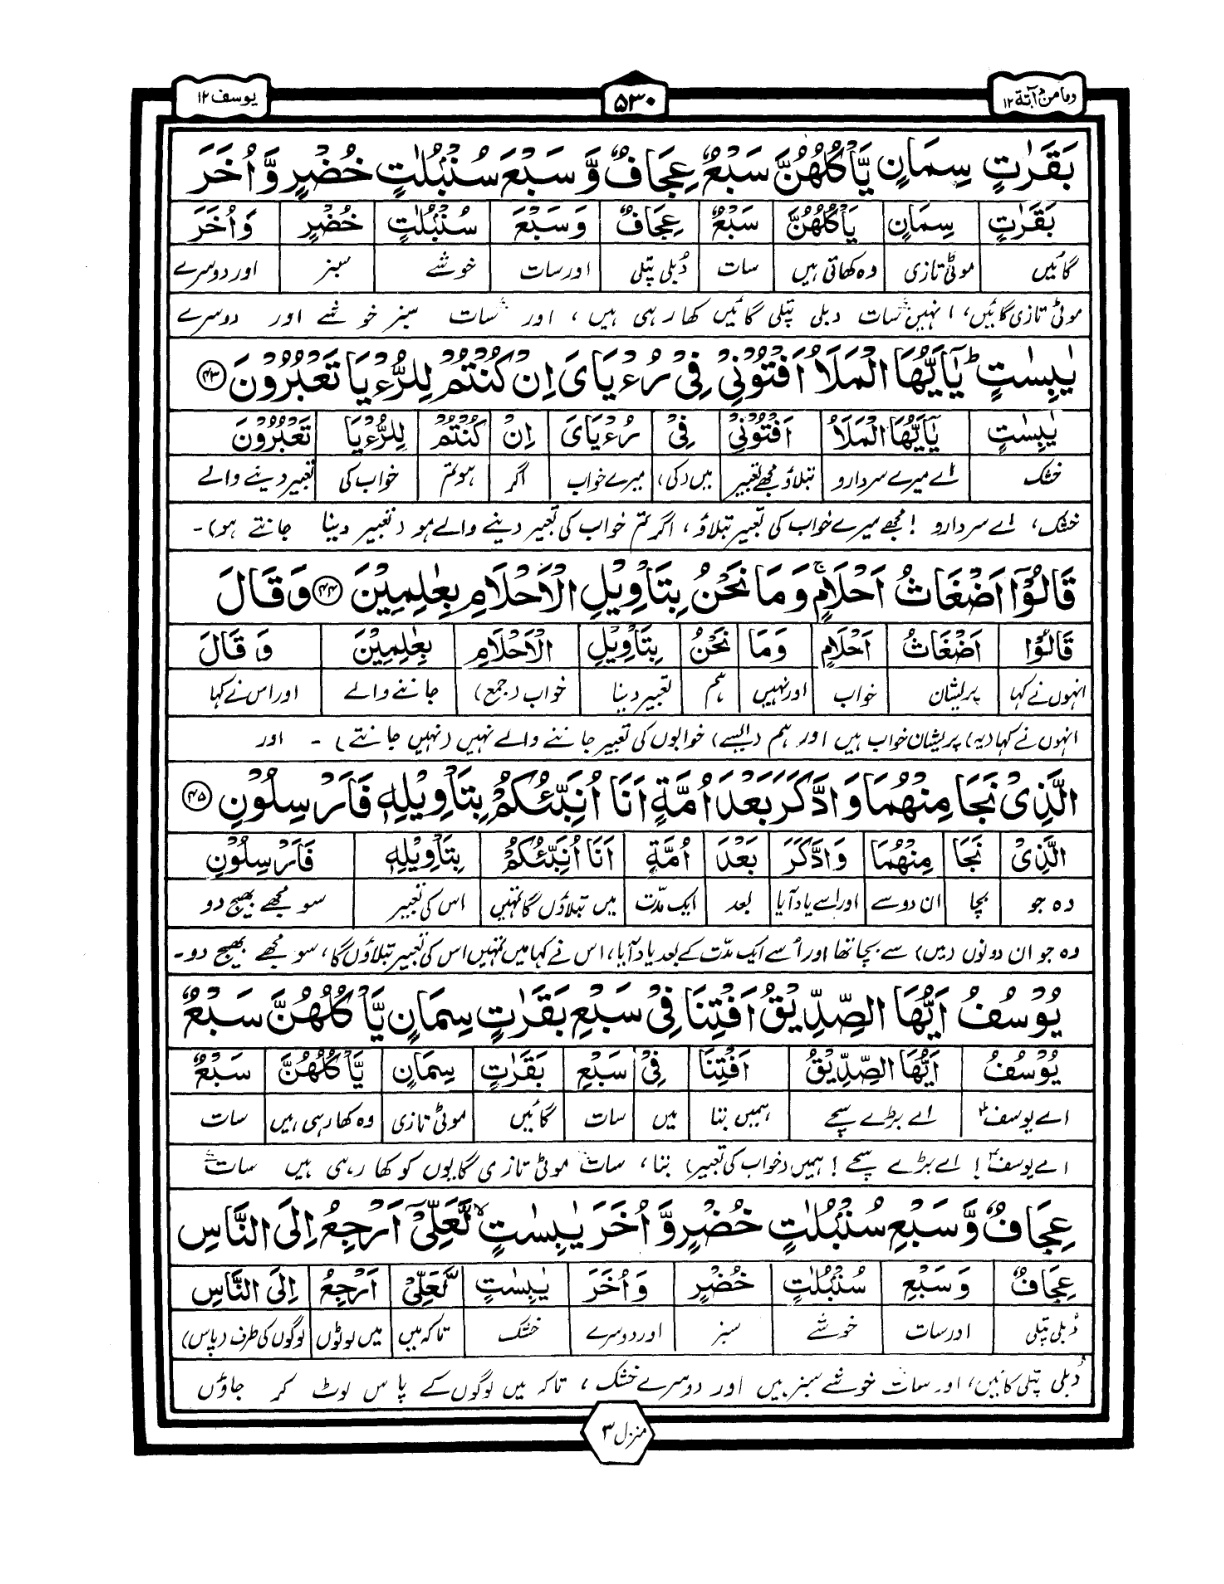 وما من دآبة ١٢ ۵۳۰ یوسف ۱۲
بَقَرٰتٍ سِمَانٍ یَّاْكُلُهُنَّ سَبْعٌ عِجَافٌ وَّ سَبْعَ سُنْۢبُلٰتٍ خُضْرٍ وَّ اُخَرَ
بَقَرٰتٍ سِمَانٍ یَاْكُلُهُنَّ سَبْعٌ عِجَافٌ وَسَبْعَ سُنْۢبُلٰتٍ خُضْرٍ وَاُخَرَ
گائیں موٹی تازی وہ کھاتی ہیں سات دُبلی پتلی اور سات خوشے سبز اور دوسرے
موٹی تازی گائیں، انہیں سات دبلی پتلی گائیں کھا رہی ہیں، اور سات سبز خوشے اور دوسرے
یٰبِسٰتٍ ؕ یٰۤاَیُّهَا الْمَلَاُ اَفْتُوْنِیْ فِیْ رُءْیَایَ اِنْ كُنْتُمْ لِلرُّءْیَا تَعْبُرُوْنَ ۴۳
یٰبِسٰتٍ یٰۤاَیُّهَا الْمَلَاُ اَفْتُوْنِیْ فِیْ رُءْیَایَ اِنْ كُنْتُمْ لِلرُّءْیَا تَعْبُرُوْنَ
خشک اے میرے سردارو بتلاؤ مجھے تعبیر میں (کی) میرے خواب اگر ہو تم خواب کی تعبیر دینے والے
خشک، اے سردارو! مجھے میرے خواب کی تعبیر بتلاؤ، اگر تم خواب کی تعبیر دینے والے ہو (تعبیر دینا جانتے ہو)۔
قَالُوْۤا اَضْغَاثُ اَحْلَامٍ ۚ وَ مَا نَحْنُ بِتَاْوِیْلِ الْاَحْلَامِ بِعٰلِمِیْنَ ۴۴ وَ قَالَ
قَالُوْۤا اَضْغَاثُ اَحْلَامٍ وَمَا نَحْنُ بِتَاْوِیْلِ الْاَحْلَامِ بِعٰلِمِیْنَ وَ قَالَ
انہوں نے کہا پریشان خواب اور نہیں ہم تعبیر دینا خواب (جمع) جاننے والے اور اس نے کہا
انہوں نے کہا (یہ) پریشان خواب ہیں اور ہم (ایسے) خوابوں کی تعبیر جاننے والے نہیں (نہیں جانتے)۔ اور
الَّذِیْ نَجَا مِنْهُمَا وَ ادَّكَرَ بَعْدَ اُمَّةٍ اَنَا اُنَبِّئُكُمْ بِتَاْوِیْلِهٖ فَاَرْسِلُوْنِ ۴۵
الَّذِیْ نَجَا مِنْهُمَا وَادَّكَرَ بَعْدَ اُمَّةٍ اَنَا اُنَبِّئُكُمْ بِتَاْوِیْلِهٖ فَاَرْسِلُوْنِ
وہ جو بچا ان دو سے اور اسے یاد آیا بعد ایک مدّت میں بتلاؤں گا تمہیں اس کی تعبیر سو مجھے بھیج دو
وہ جو ان دونوں (میں) سے بچا تھا اور اُسے ایک مدّت کے بعد یاد آیا، اس نے کہا میں تمہیں اس کی تعبیر بتلاؤں گا، سو مجھے بھیج دو۔
یُوْسُفُ اَیُّهَا الصِّدِّیْقُ اَفْتِنَا فِیْ سَبْعِ بَقَرٰتٍ سِمَانٍ یَّاْكُلُهُنَّ سَبْعٌ
یُوْسُفُ اَیُّهَا الصِّدِّیْقُ اَفْتِنَا فِیْ سَبْعِ بَقَرٰتٍ سِمَانٍ یَّاْكُلُهُنَّ سَبْعٌ
اے یوسفؑ اے بڑے سچے ہمیں بتا میں سات گائیں موٹی تازی وہ کھا رہی ہیں سات
اے یوسفؑ! اے بڑے سچے! ہمیں (خواب کی تعبیر) بتا، سات موٹی تازی گایوں کو کھا رہی ہیں سات
عِجَافٌ وَّ سَبْعِ سُنْۢبُلٰتٍ خُضْرٍ وَّ اُخَرَ یٰبِسٰتٍ ۙ لَّعَلِّیْۤ اَرْجِعُ اِلَی النَّاسِ
عِجَافٌ وَ سَبْعِ سُنْۢبُلٰتٍ خُضْرٍ وَاُخَرَ یٰبِسٰتٍ لَّعَلِّیْۤ اَرْجِعُ اِلَی النَّاسِ
دُبلی پتلی اور سات خوشے سبز اور دوسرے خشک تاکہ میں میں لوٹوں لوگوں کی طرف (پاس)
دُبلی پتلی گائیں، اور سات خوشے سبز ہیں اور دوسرے خشک، تاکہ میں لوگوں کے پاس لوٹ کر جاؤں
منزل ۳